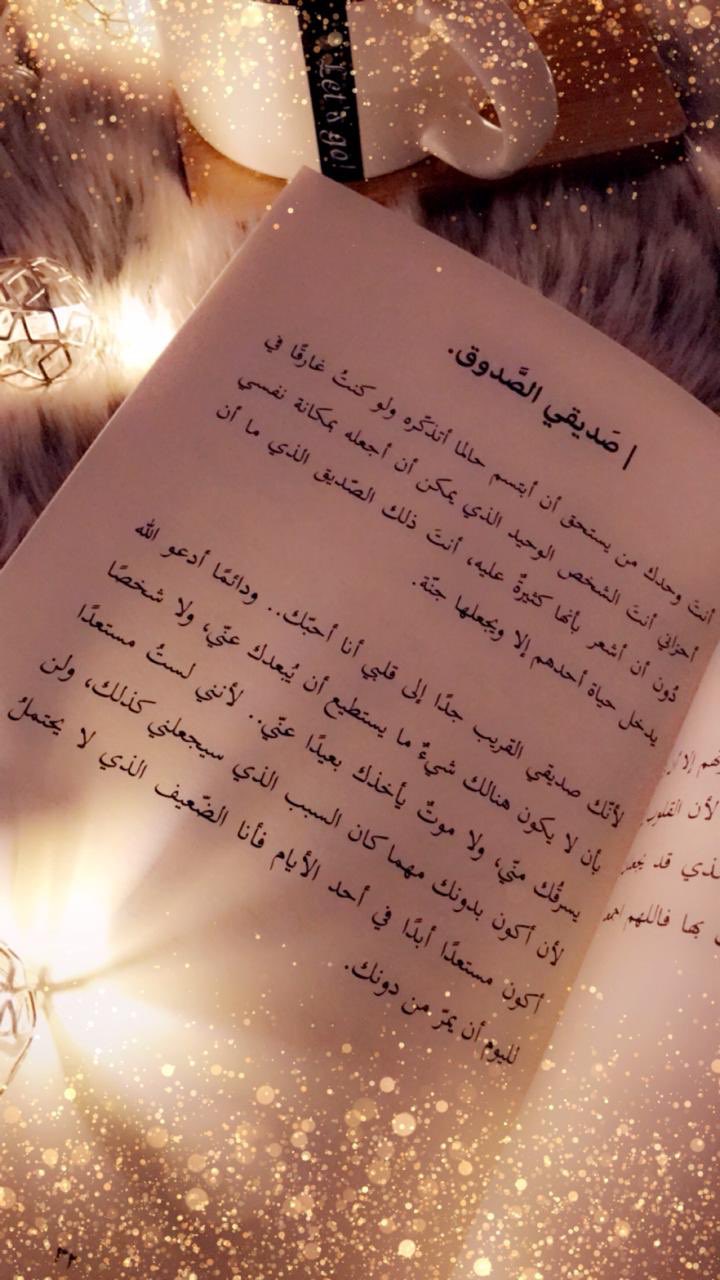 Let's go!
| صَديقي الصَّدوق.
أنتَ وحدك من يستحق أن أبتسم حالما أتذكّره ولو كنتُ غارقًا في
أحزاني أنتَ الشخص الوحيد الذي يمكن أن أجعله بمكانة نفسي
دُون أن أشعر بأنها كثيرةٌ عليه، أنتَ ذلك الصّديق الذي ما أن
يدخل حياة أحدهم إلا ويجعلها جنّة.
لأنّك صديقي القريب جدًا إلى قلبي أنا أحبّك.. ودائمًا أدعو الله
بأن لا يكون هنالك شيءٌ ما يستطيع أن يُبعدك عنّي، ولا شخصًا
يسرقُك منّي، ولا موتٌ يأخذك بعيدًا عنّي.. لأنني لستُ مستعدًا
لأن أكون بدونك مهما كان السبب الذي سيجعلني كذلك، ولن
أكون مستعدًا أبدًا في أحد الأيام فأنا الضّعيف الذي لا يحتملُ
لليوم أن يمرّ من دونك.
لأن القلوب
بها فاللهم